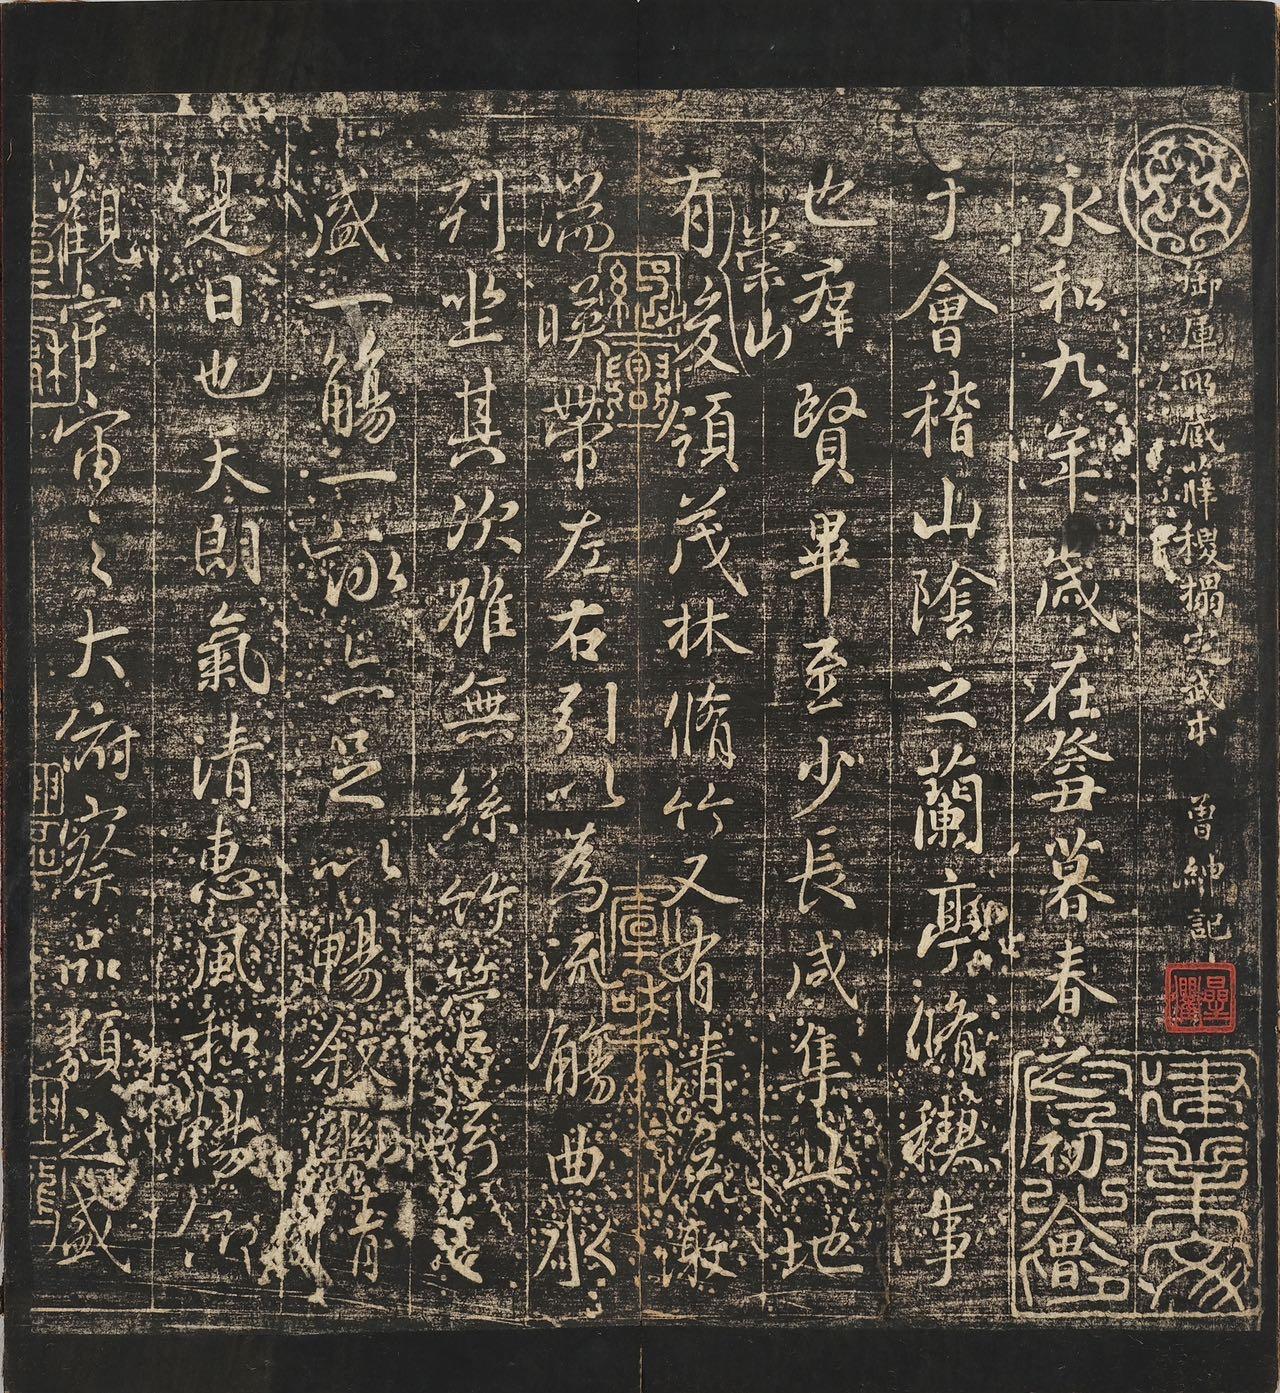 御庫所藏薛稷搨定武本 曹紳記
建業文房之印
永和九年歲在癸丑暮春之初會
于會稽山陰之蘭亭脩稧事
也羣賢畢至少長咸集此地
崇山
有峻領茂林脩竹又有清流激
湍暎帶左右引以為流觴曲水
列坐其次雖無絲竹管弦之
盛一觴一詠亦足以暢敘幽情
是日也天朗氣清惠風和暢仰
觀宇宙之大俯察品類之盛